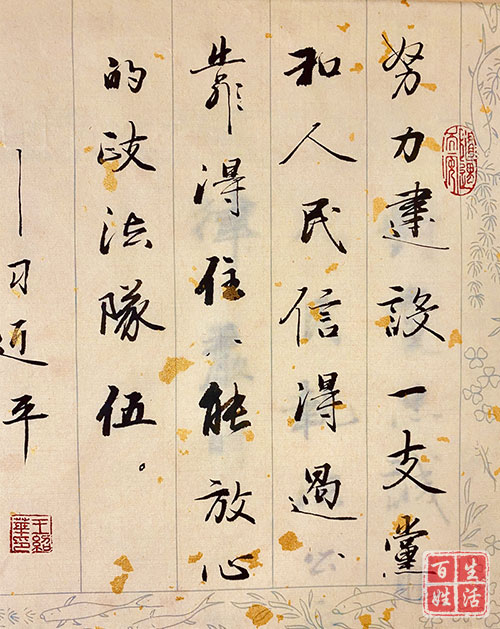 努力建設一支黨
和人民信得過、
靠得住、能放心
的政法隊伍。
——习近平
百姓生活